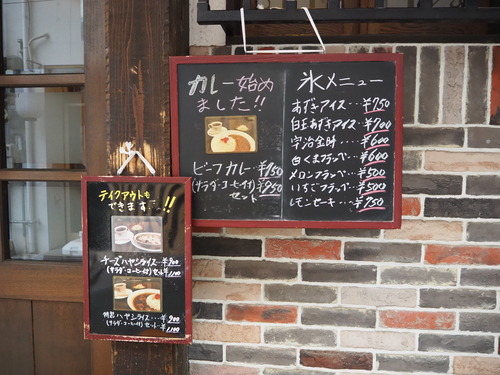 カレー始め
ました!!
ビーフカレー・¥750
(サラダ・コーヒー付)¥950
セット
氷メニュー
あずきアイス・・・¥750
白玉あずきアイス・・¥700
宇治金時・・・・¥600
白くまフラッペ・・¥600
メロンフラッペ・・・¥500
いちごフラップ・・・¥500
レモンセーキ・・・¥750
テイクアウトも
できます・・!!
チーズハヤシライス・・¥900
(サラダ・コーヒー付)セット¥1,100
ハヤシライス・・・¥900
(サラダ・コーヒー付)セット・¥1,100